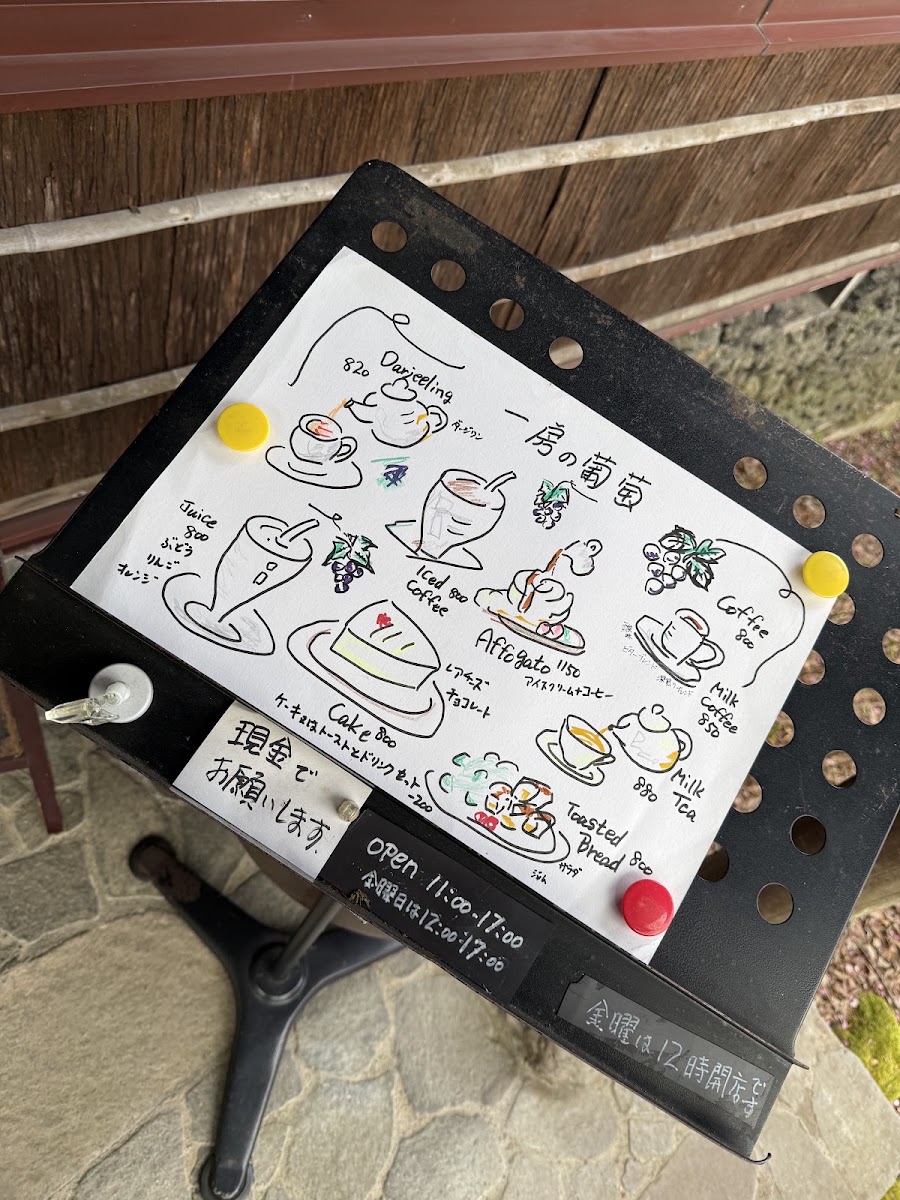 一房の葡萄
Darjeeling
820
ダージリン
Juice
800
ぶどう
りんご
オレンジ
Iced 800
Coffee
Affogato 1150
アイスクリーム+コーヒー
Coffee
800
Milk
Coffee
850
Cake 800
レアチーズ
チョコレート
ケーキ又はトーストとドリンクセット
-200
Milk
Tea
880
Toasted
Bread 800
サラダ
ジャム
現金で
お願いします。
OPEN 11:00-17:00
金曜日は12:00-17:00
金曜は12時開店です